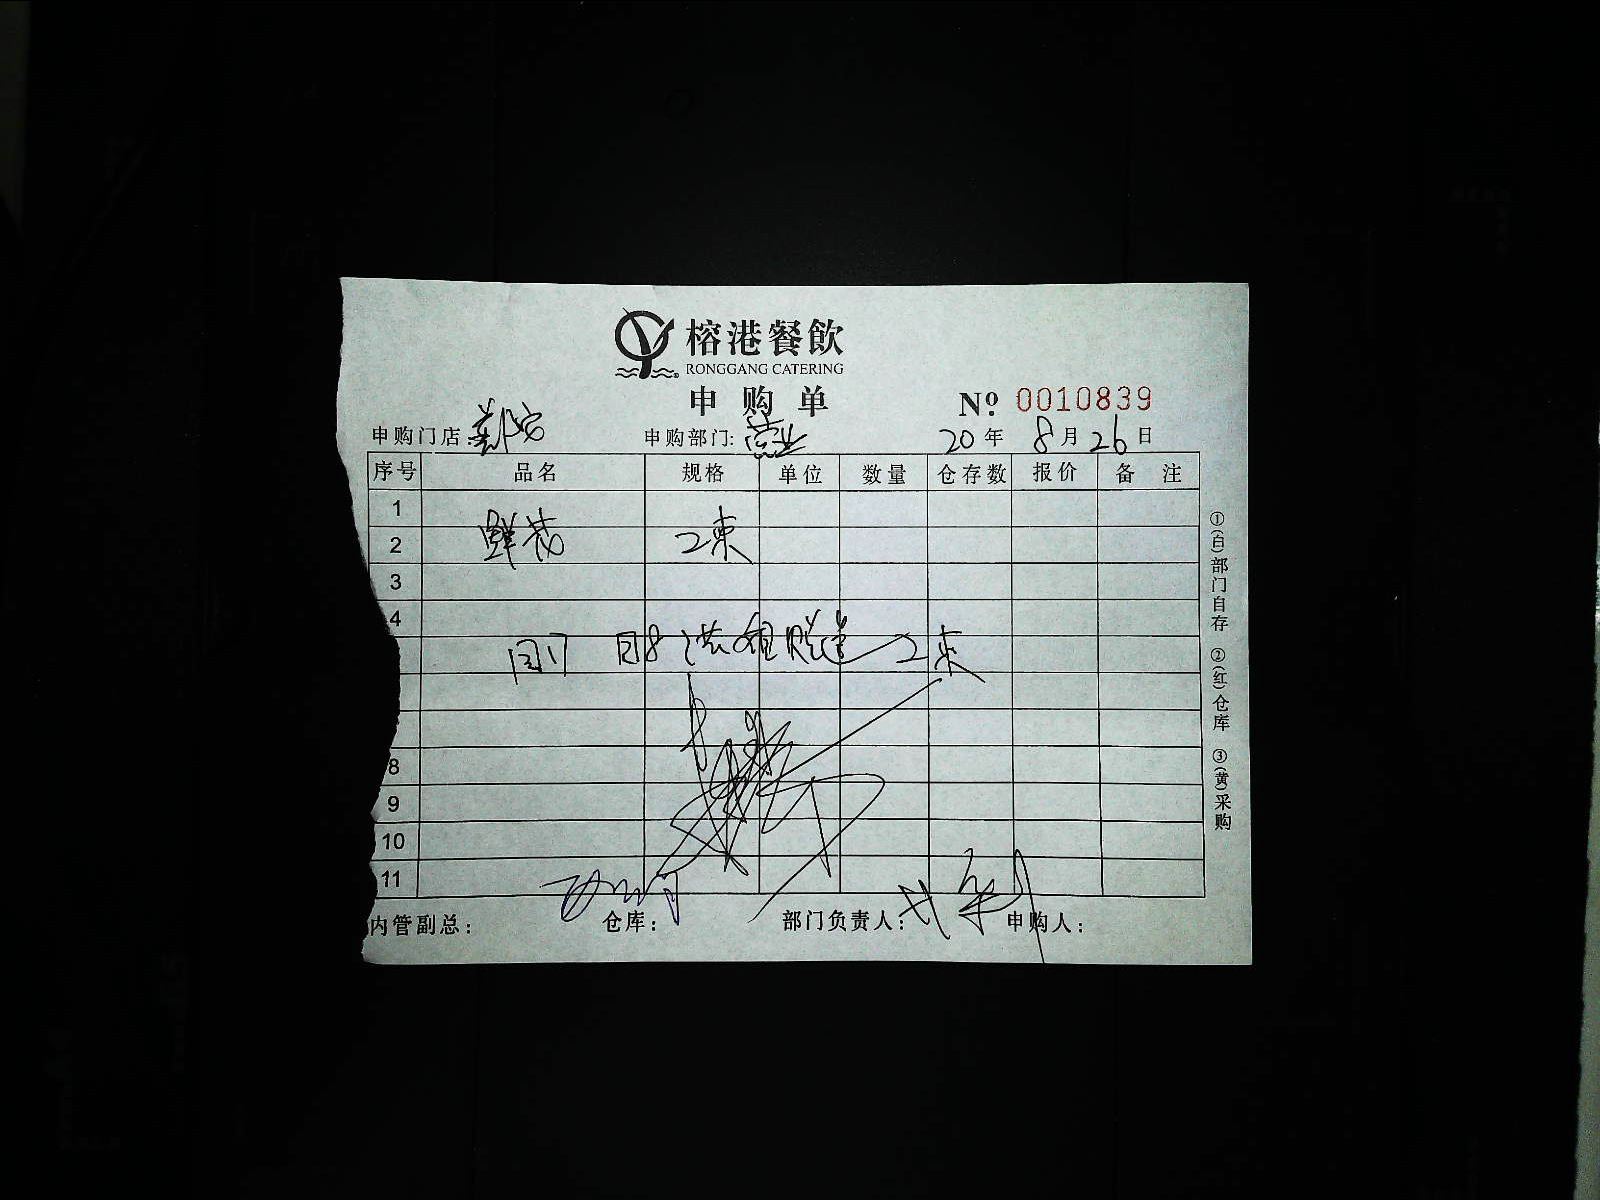 榕港餐飲
RONGGANG CATERING
申购单
№ 0010839
申购门店: 申购部门: 营业 20年 8月 26日
序号 品名 规格 单位 数量 仓存数 报价 备 注
1
2 鲜花 2束
3
4
赠送 2束
8
9
10
11
内管副总: 仓库: 部门负责人: 申购人:
①(白)部门自存 ②(红)仓库 ③(黄)采购